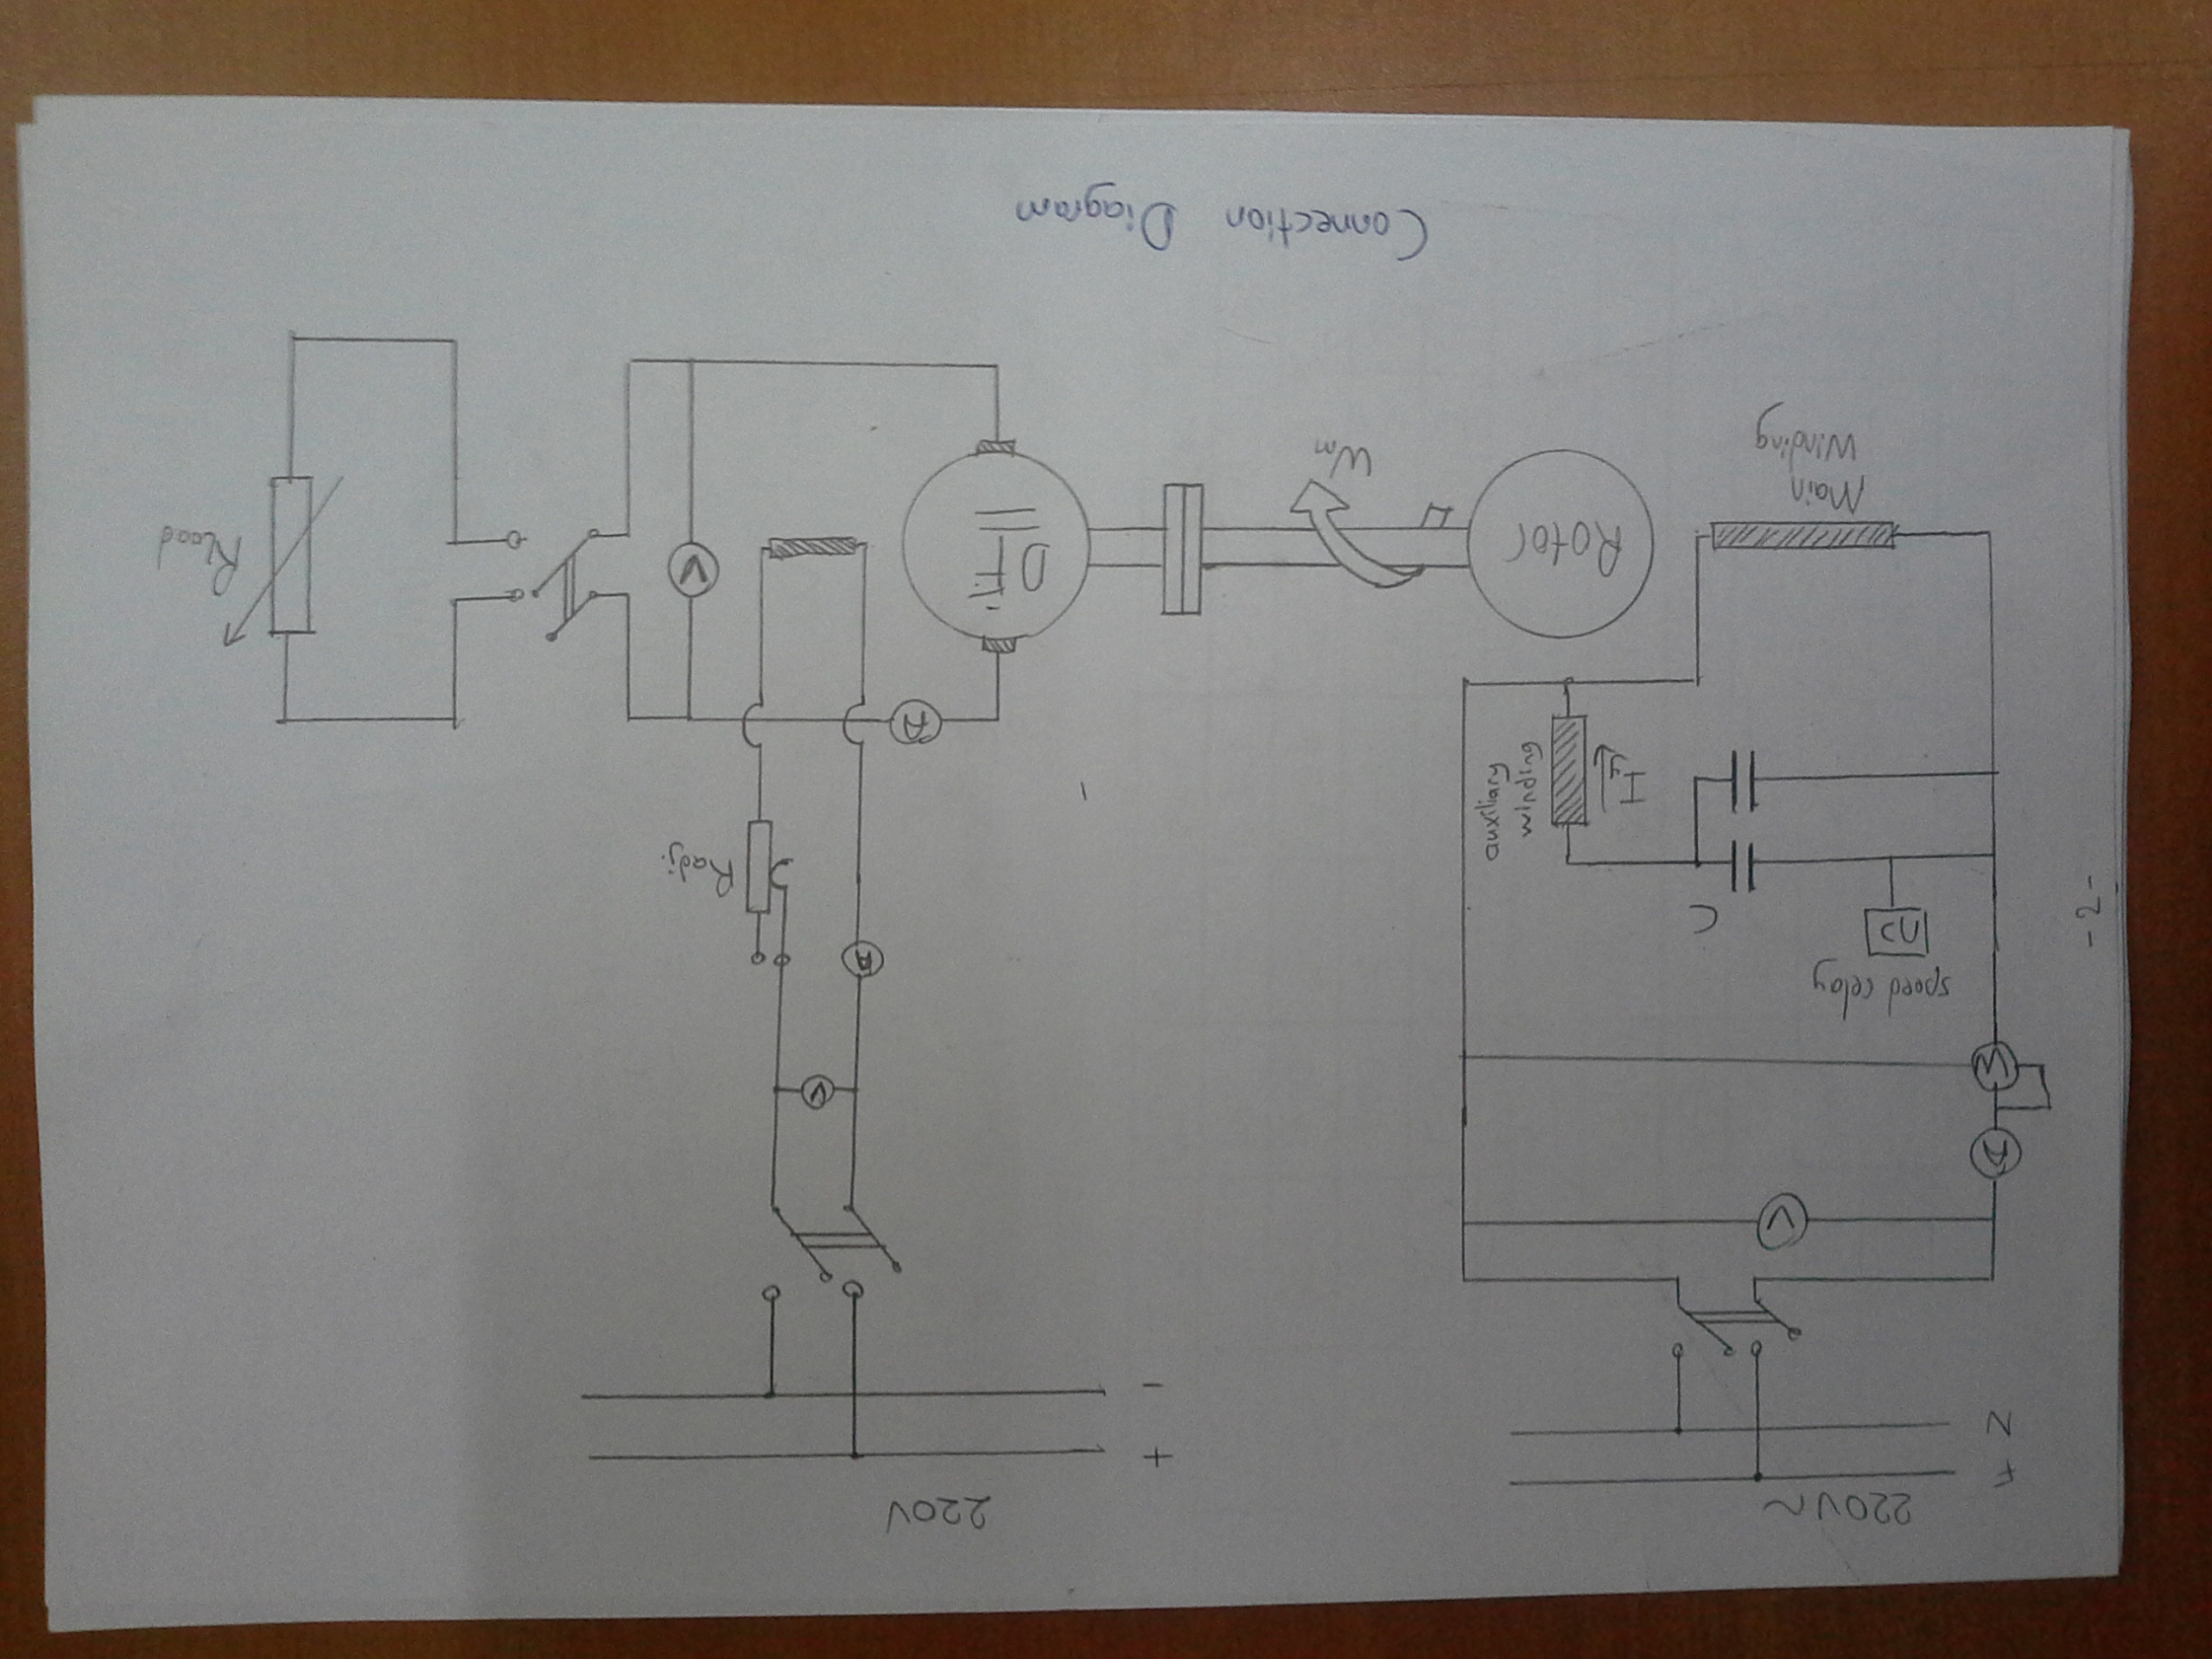 220V~
F
N
V
A
W
speed relay
n>
C
auxiliary
winding
I
Main
Winding
-2-
Rotor
Wm
220V
+
-
V
A
Radj.
A
DF
V
RLoad
Connection Diagram